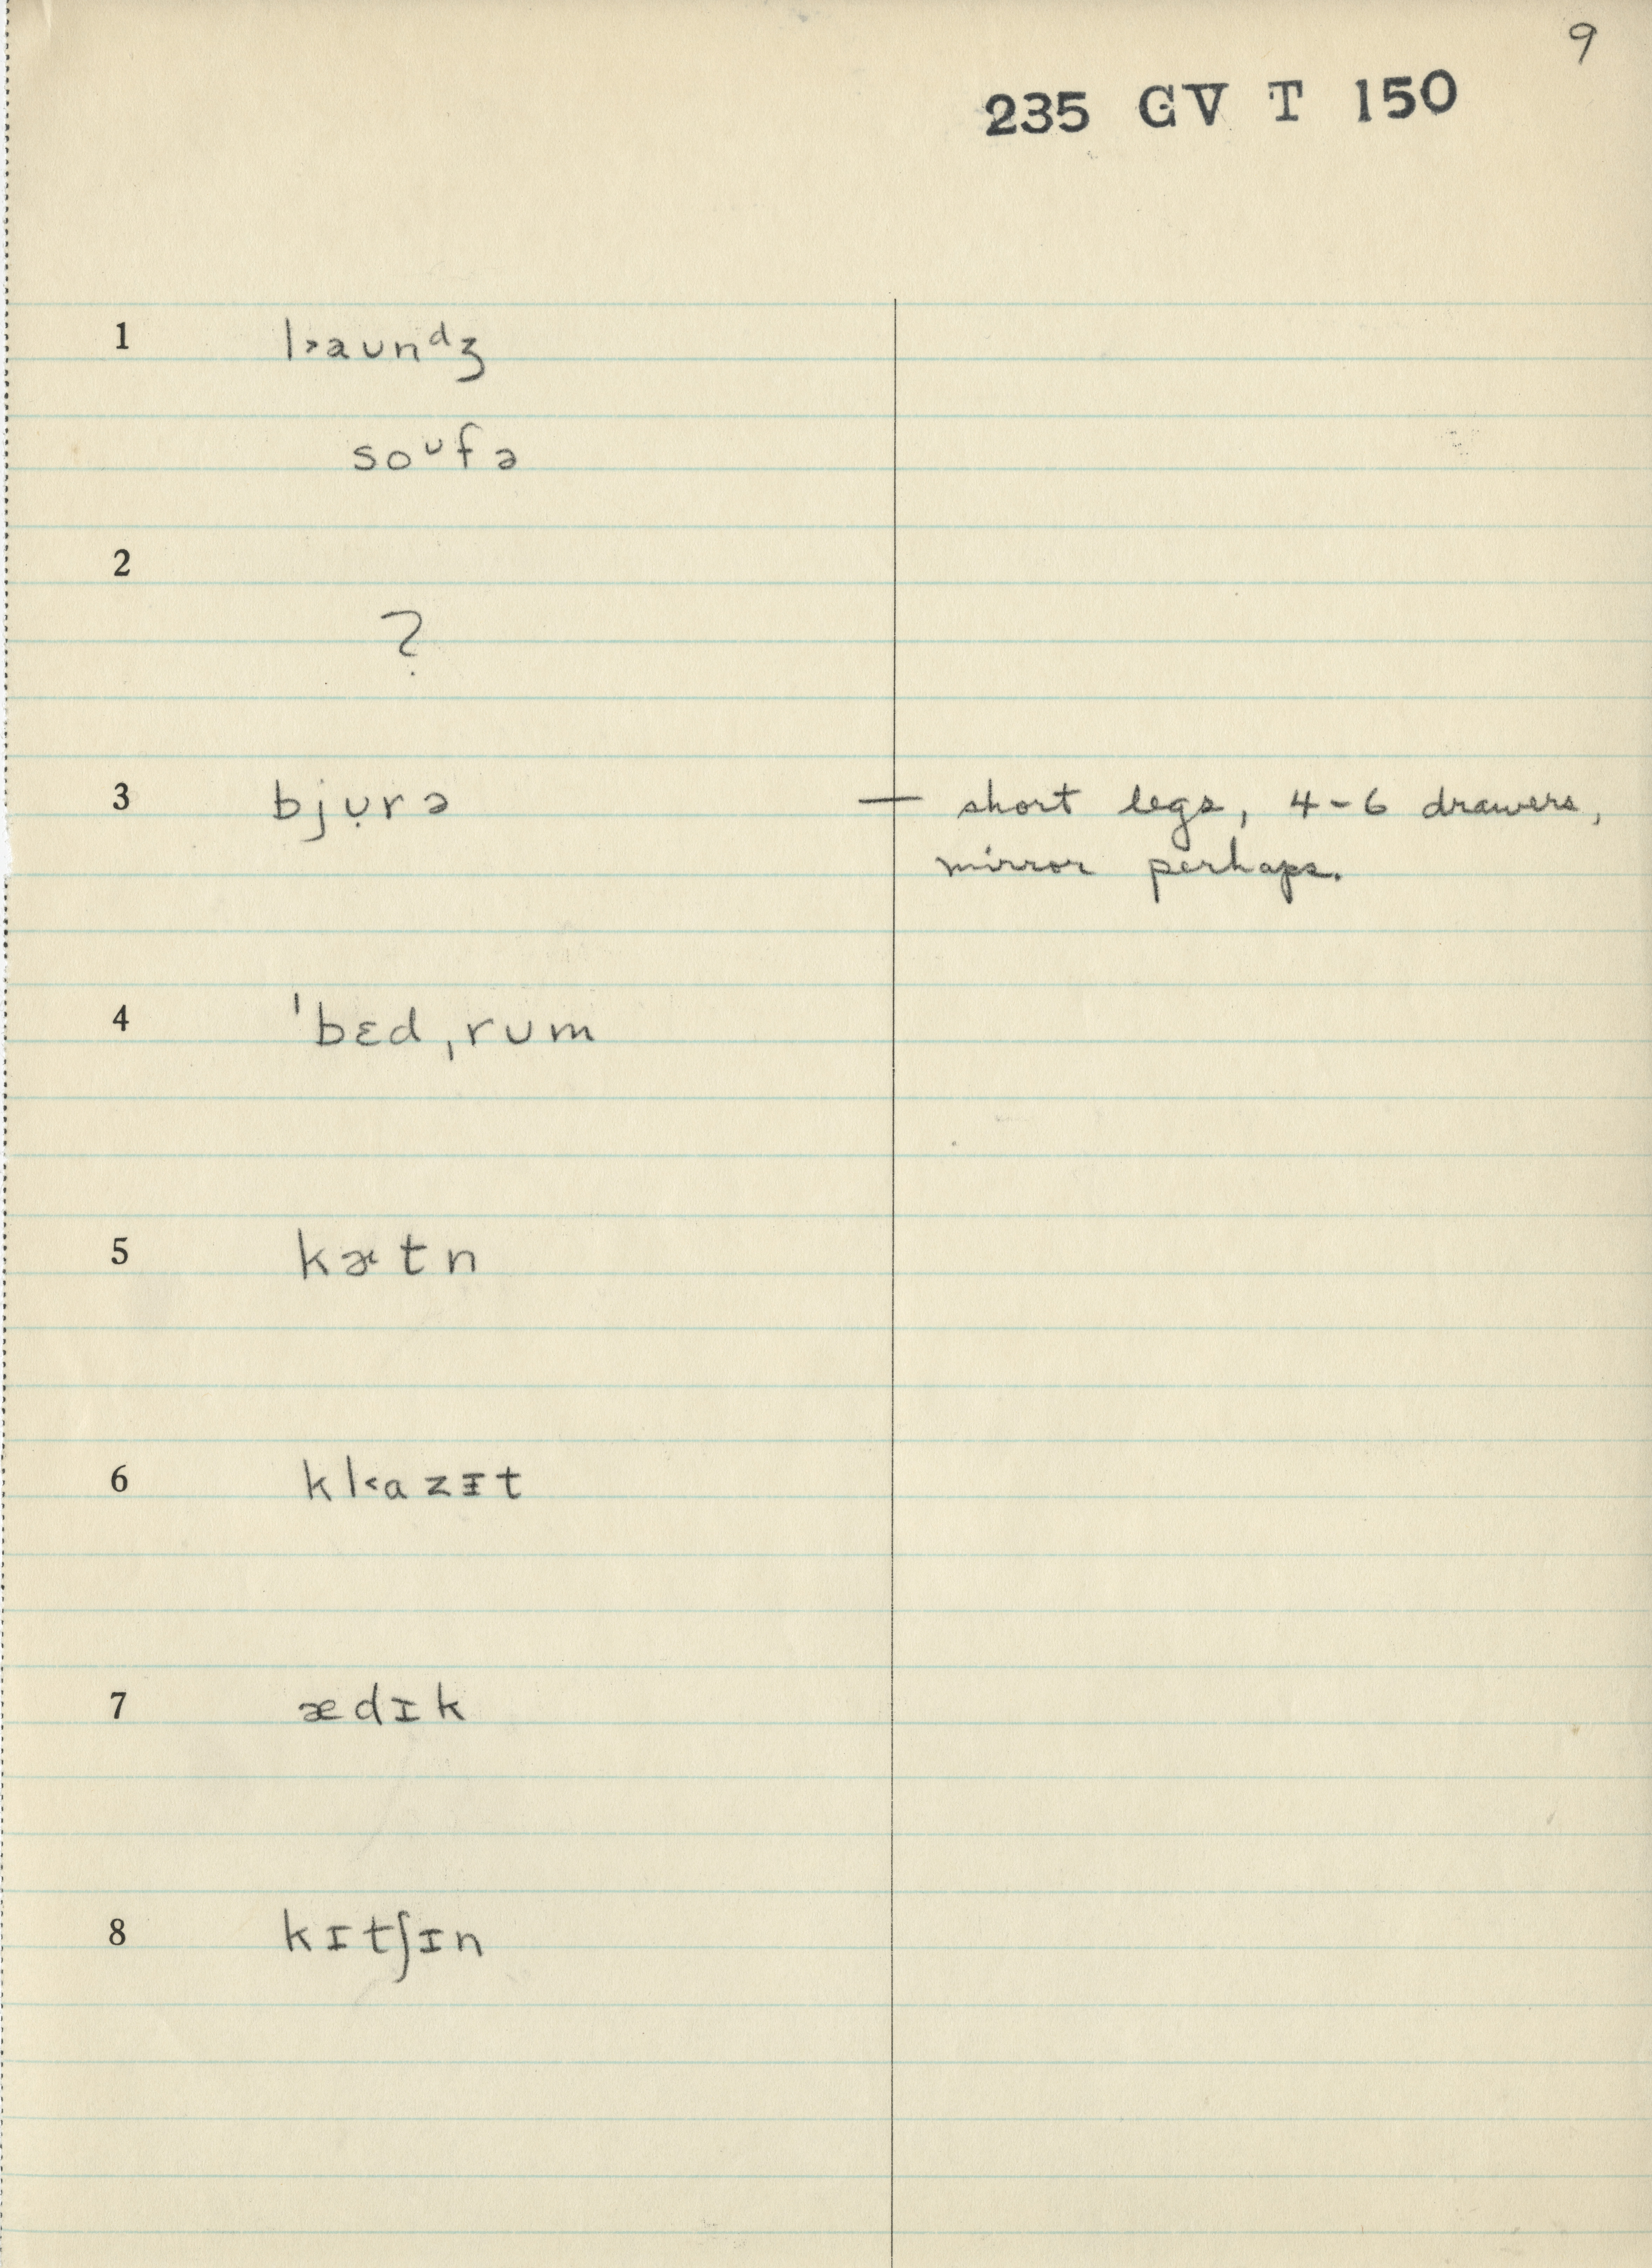 9
235 GV T 150
1 l˃aʊnᵈʒ
soᶷfə
2
?
3 bjụrə — short legs, 4-6 drawers,
mirror perhaps.
4 ˈbɛdˌrʊm
5 kætn
6 kl˂azᵻt
7 ædɪk
8 kɪtʃɪn